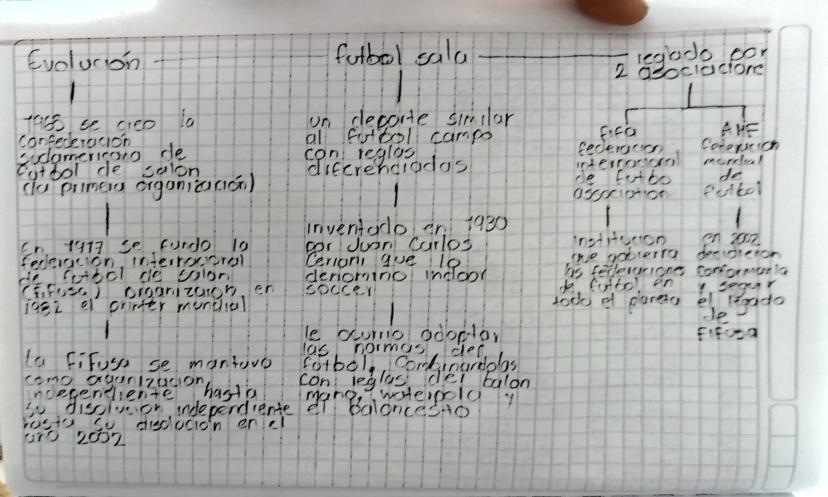 Evolución
1965 se creo la
confederación
sudamericana de
futbol de salon
(la primera organización)
En 1977 se fundo la
federación internacional
de futbol de salon
(fifusa) organizaron en
1982 el primer mundial
La fifusa se mantuvo
como organización
independiente hasta
su disolucion independiente
hasta su disolución en el
año 2002
futbol sala
un deporte similar
al futbol campo
con reglas
diferenciadas
inventado en 1930
por Juan Carlos
Ceriani que lo
denomino indoor
soccer
le ocurrio adoptar
las normas del
futbol, Combinandolas
con reglas del balon
mano, waterpolo y
el baloncesto
reglado por
2 asociacione
fifa
federacion
internacional
de futbo
association
institucion
que gobierna
las federaciones
de futbol en
todo el planeta
AMF
federacion
mundial
de
futbol
en 2002
decidieron
conformarla
y seguir
el legado
de
fifusa